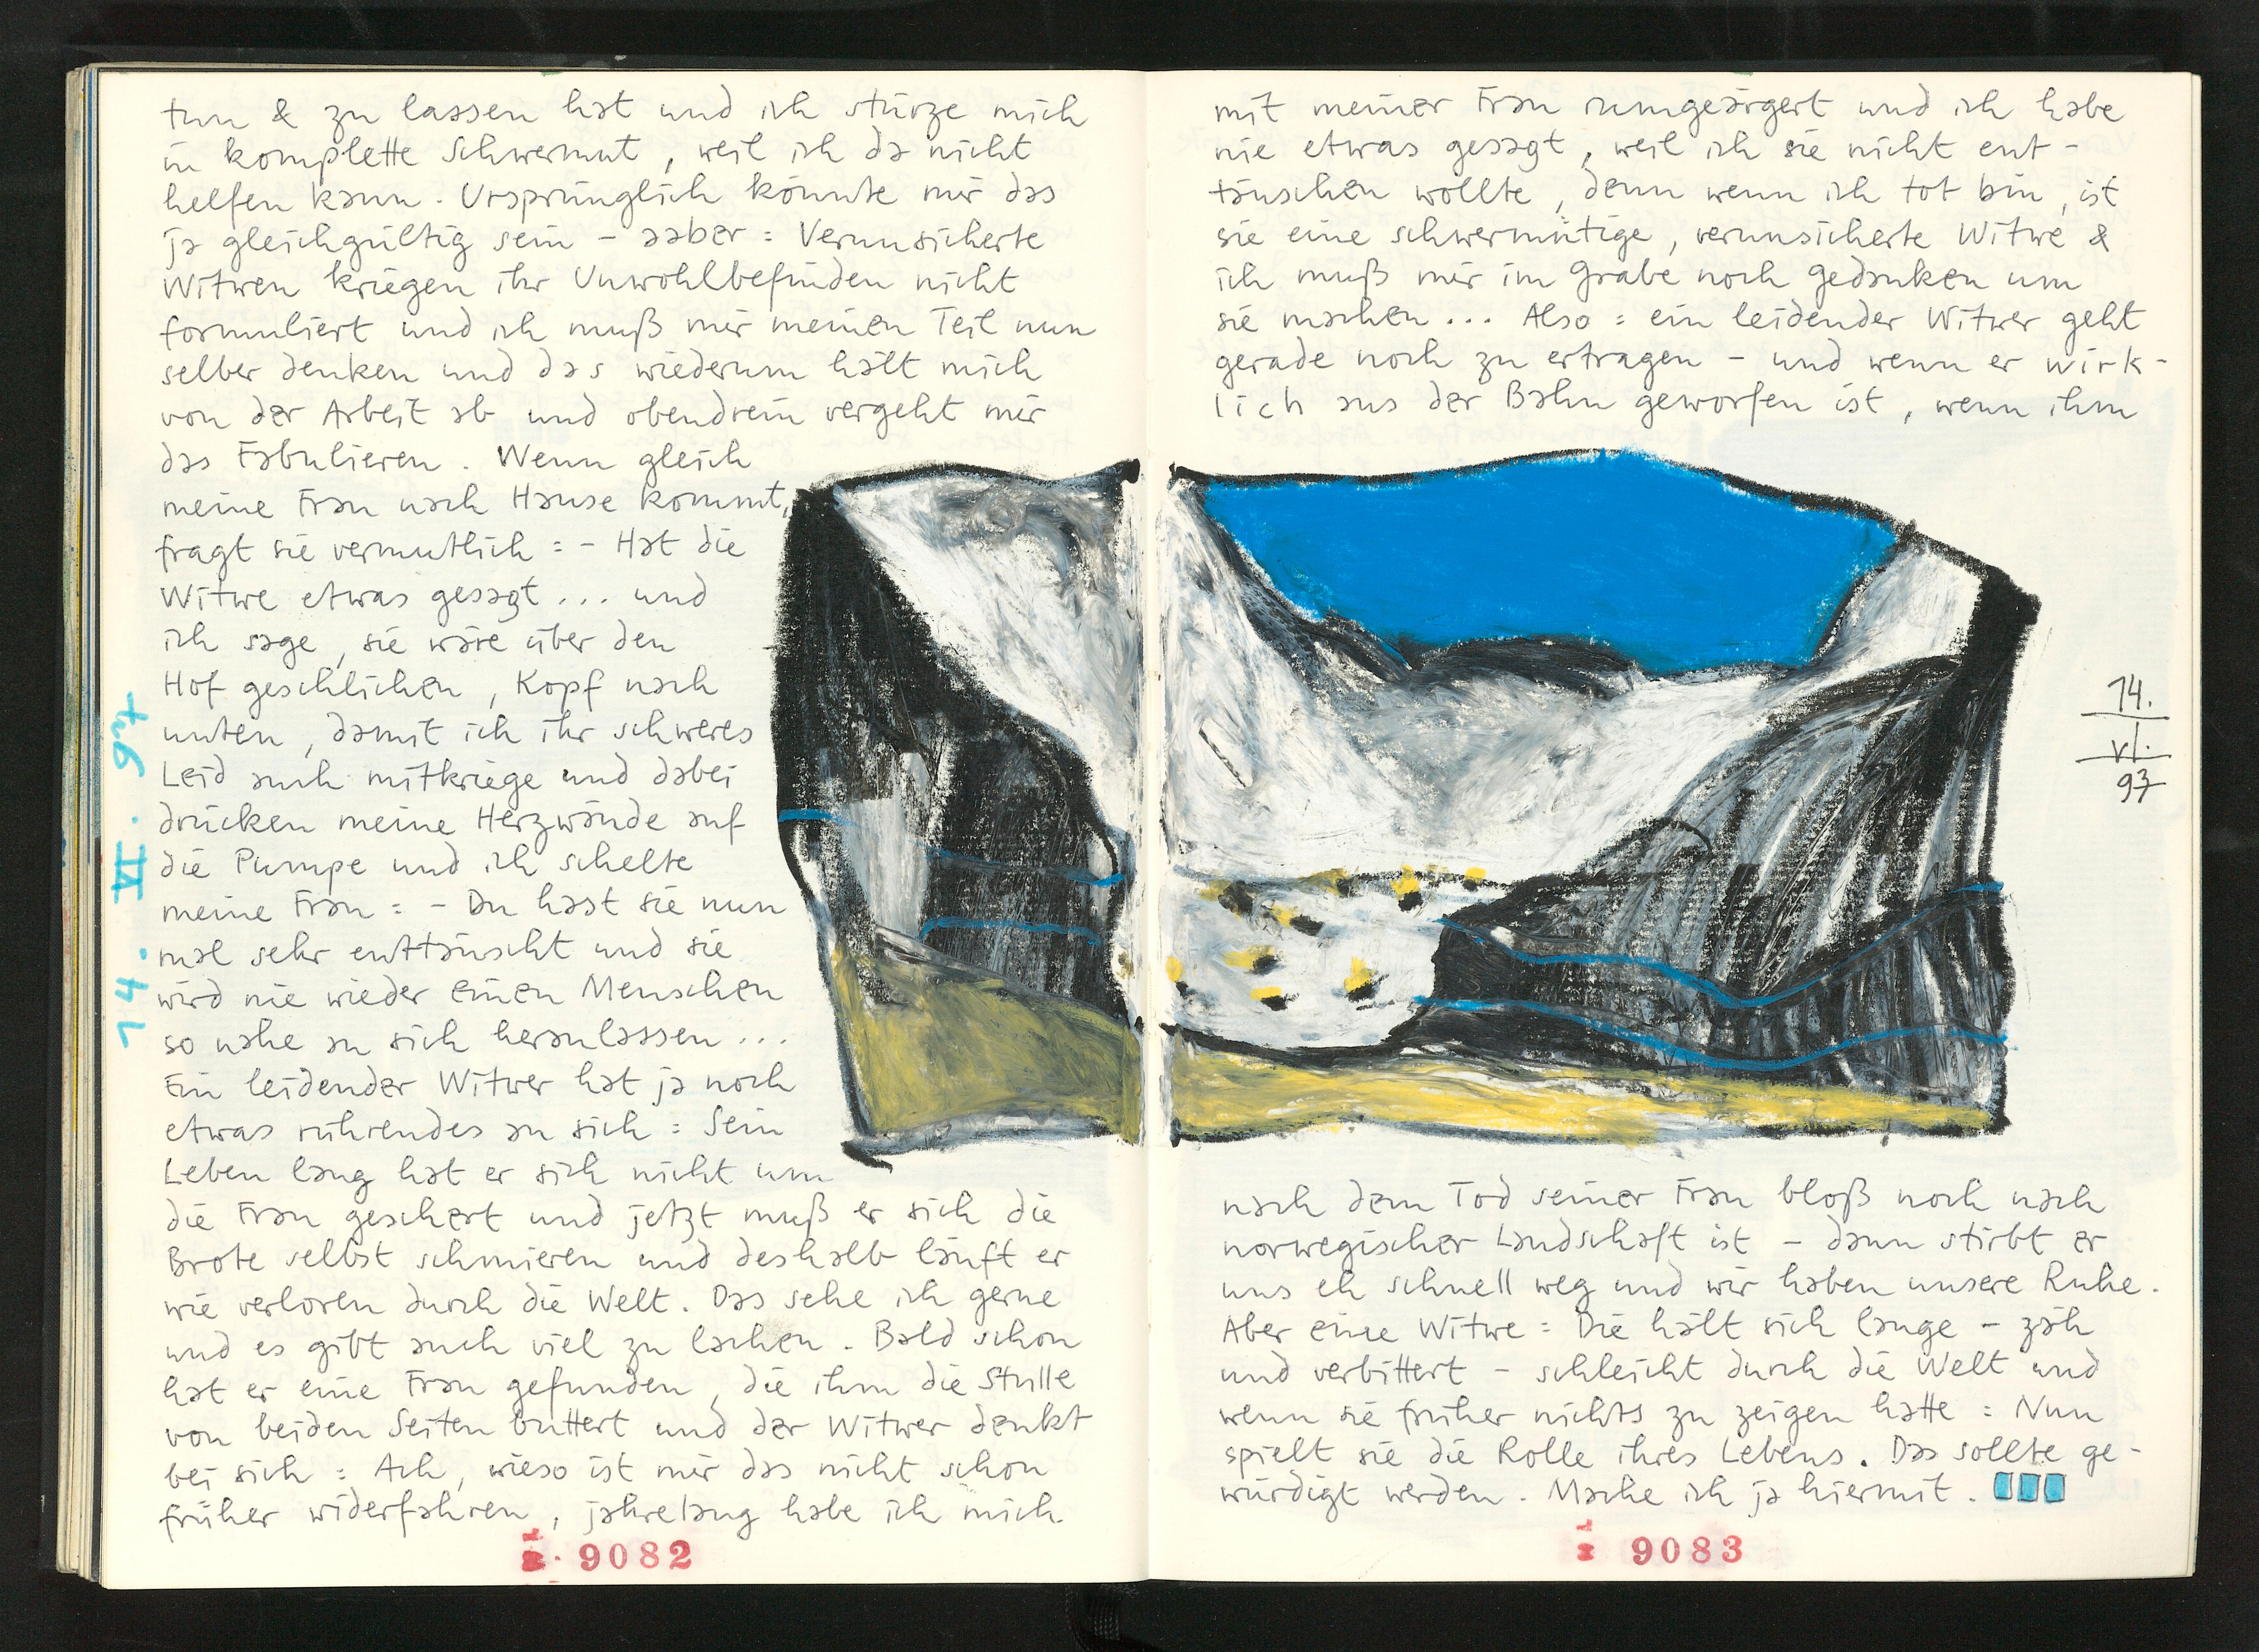 tun & zu lassen hat und ich stürze mich
in komplette Schwermut, weil ich da nicht
helfen kann. Ursprünglich könnte mir das
ja gleichgültig sein – aaber: Verunsicherte
Witwen kriegen ihr Unwohlbefinden nicht
formuliert und ich muß mir meinen Teil nun
selber denken und das wiederum hält mich
von der Arbeit ab und obendrein vergeht mir
das Fabulieren. Wenn gleich
meine Frau nach Hause kommt,
fragt sie vermutlich: – Hat die
Witwe etwas gesagt... und
ich sage, sie wäre über den
Hof geschlichen, Kopf nach
unten, damit ich ihr schweres
Leid auch mitkriege und dabei
drücken meine Herzwände auf
die Pumpe und ich schelte
meine Frau: – Du hast sie nun
mal sehr enttäuscht und sie
wird nie wieder einen Menschen
so nahe an sich heranlassen...
Ein leidender Witwer hat ja noch
etwas rührendes an sich: Sein
Leben lang hat er sich nicht um
die Frau geschert und jetzt muß er sich die
Brote selbst schmieren und deshalb läuft er
wie verloren durch die Welt. Das sehe ich gerne
und es gibt auch viel zu lachen. Bald schon
hat er eine Frau gefunden, die ihm die Stulle
von beiden Seiten buttert und der Witwer denkt
bei sich: Ach, wieso ist mir das nicht schon
früher widerfahren, jahrelang habe ich mich
14. VI. 97
9082
mit meiner Frau rumgeärgert und ich habe
nie etwas gesagt, weil ich sie nicht ent-
täuschen wollte, denn wenn ich tot bin, ist
sie eine schwermütige, verunsicherte Witwe &
ich muß mir im Grabe noch Gedanken um
sie machen... Also: ein leidender Witwer geht
gerade noch zu ertragen – und wenn er wirk-
lich aus der Bahn geworfen ist, wenn ihm
14.
VI.
97
nach dem Tod seiner Frau bloß noch nach
norwegischer Landschaft ist – dann stirbt er
uns eh schnell weg und wir haben unsere Ruhe.
Aber eine Witwe: Die hält sich lange – zäh
und verbittert – schleicht durch die Welt und
wenn sie früher nichts zu zeigen hatte: Nun
spielt sie die Rolle ihres Lebens. Das sollte ge-
würdigt werden. Mache ich ja hiermit.
9083